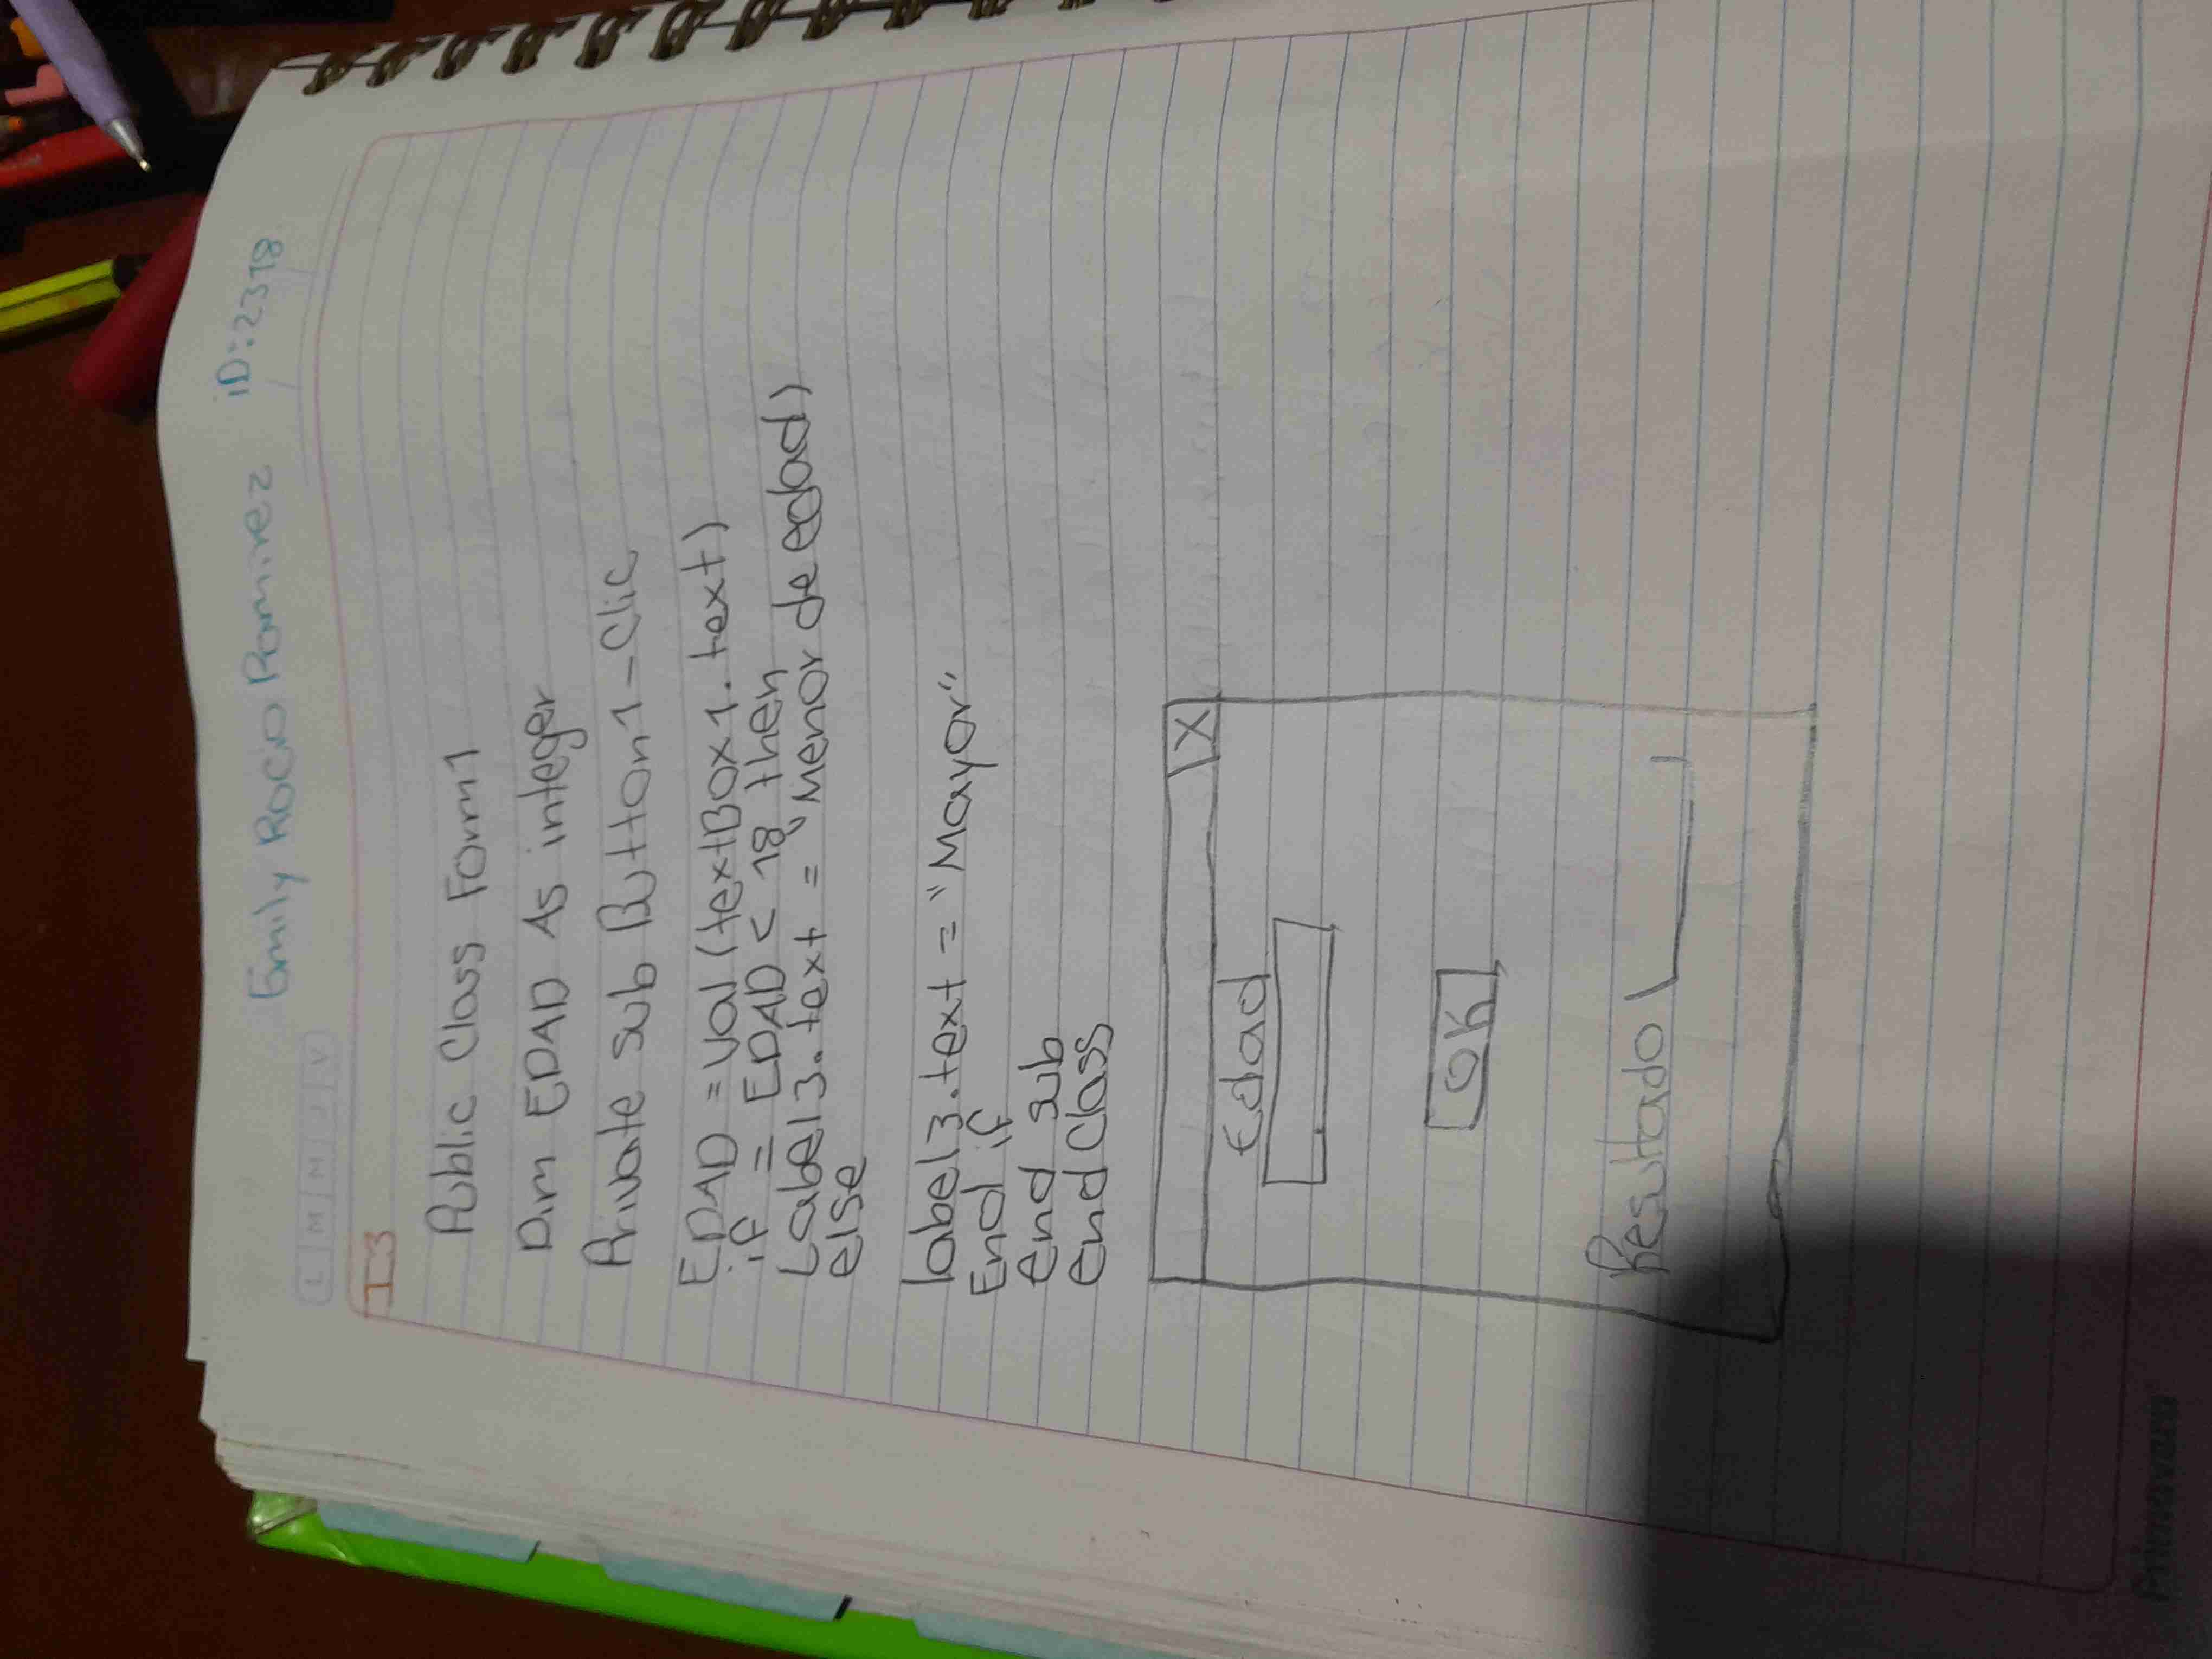 Emily Rocio Ramirez iD:2318
L M M J V
I3
Public Class Form1
Dim EDAD As integer
Private sub Button1-Clic
EDAD = val (textBox1.text)
if = EDAD < 18 then
Label3.text = "Menor de edad)
else
label3.text = "Mayor"
End if
end sub
end class
X
Edad
OK
Resultado
Primavera